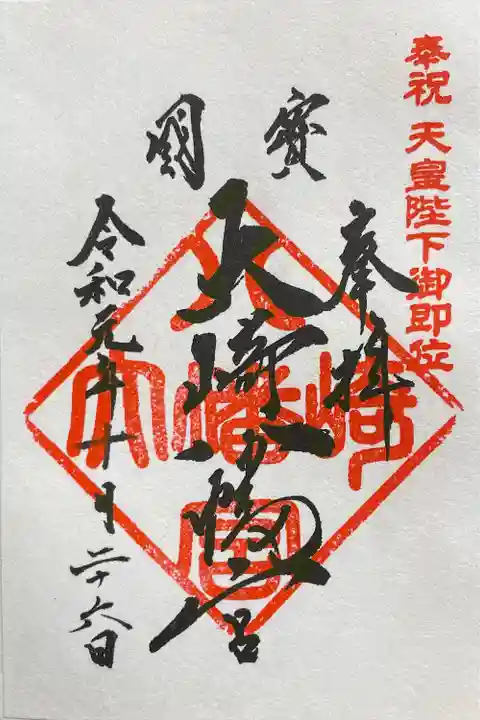 奉祝 天皇陛下御即位
奉拝
國寳
大崎八幡宮
令和元年十月二十六日
大崎八幡宮